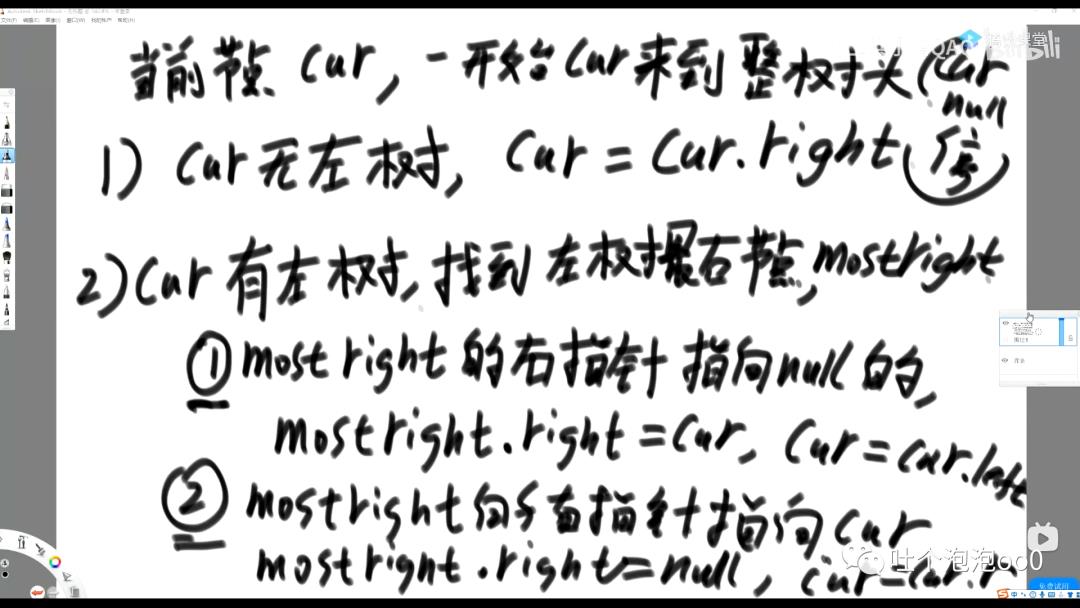 当前节点 cur, 一开始cur来到整树头(cur null 停)
1) cur无左树, cur = cur.right
2) cur有左树, 找到左树最右节点, mostright
① mostright的右指针指向null的,
mostright.right = cur, cur = cur.left
② mostright的右指针指向cur
mostright.right = null, cur = cur.r
吐个泡泡oO0
免费试用